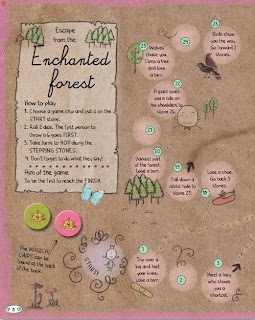 Escape
from the
Enchanted
forest
How to play
1. Choose a game chip and put it on the
START stone.
2. Roll 2 dice. The first person to
throw a 6 goes FIRST.
3. Take turns to HOP along the
STEPPING STONES.
4. Don't forget to do what they say!
Aim of the game
To be the first to reach the FINISH.
23
Wolves
chase you.
Climb a tree
and lose
a turn.
24
25
Birds show
you the way.
Go forward 2
stones.
22
A giant gives
you a ride on
his shoulders to
stone 26.
21
20
Darkest part
of the forest.
Lose a turn.
19
Fall down a
rabbit hole to
stone 29.
18
Lose a shoe.
Go back 3
stones.
The MAGICAL
CHIPS can be
found at the back
of the book.
START
1
Trip over a
log and hurt
your knee.
Lose a turn.
2
3
Meet a fairy who
shows you
a shortcut.